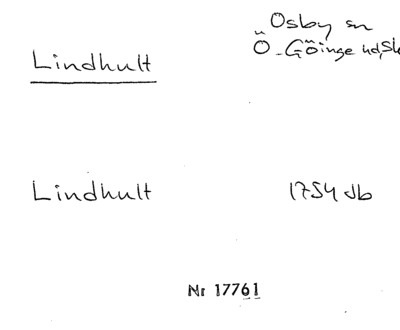 Lindhult
Osby sn
Ö-Göinge hd, Sk
Lindhult
1754 Jb
Nr 17761